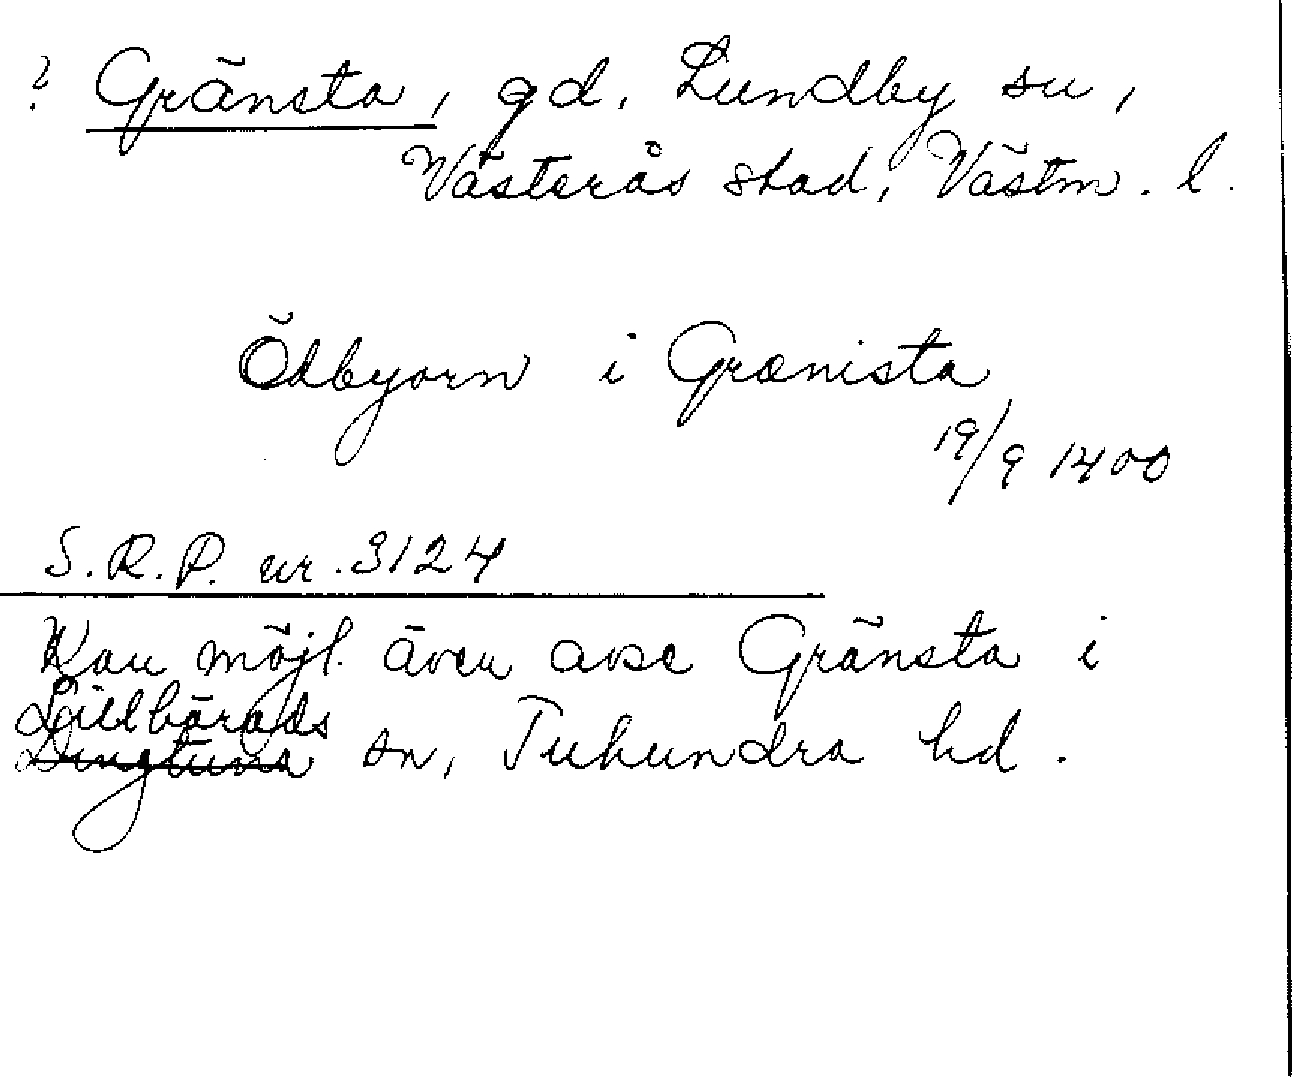 ? Gränsta, gd. Lundby sn,
Västerås stad, Västm. l.
Ödbyorn i Grænista
19/9 1400
S.R.P. nr. 3124
Kan möjl. även avse Gränsta i
Lillhärads
Dingtuna sn, Tuhundra hd.